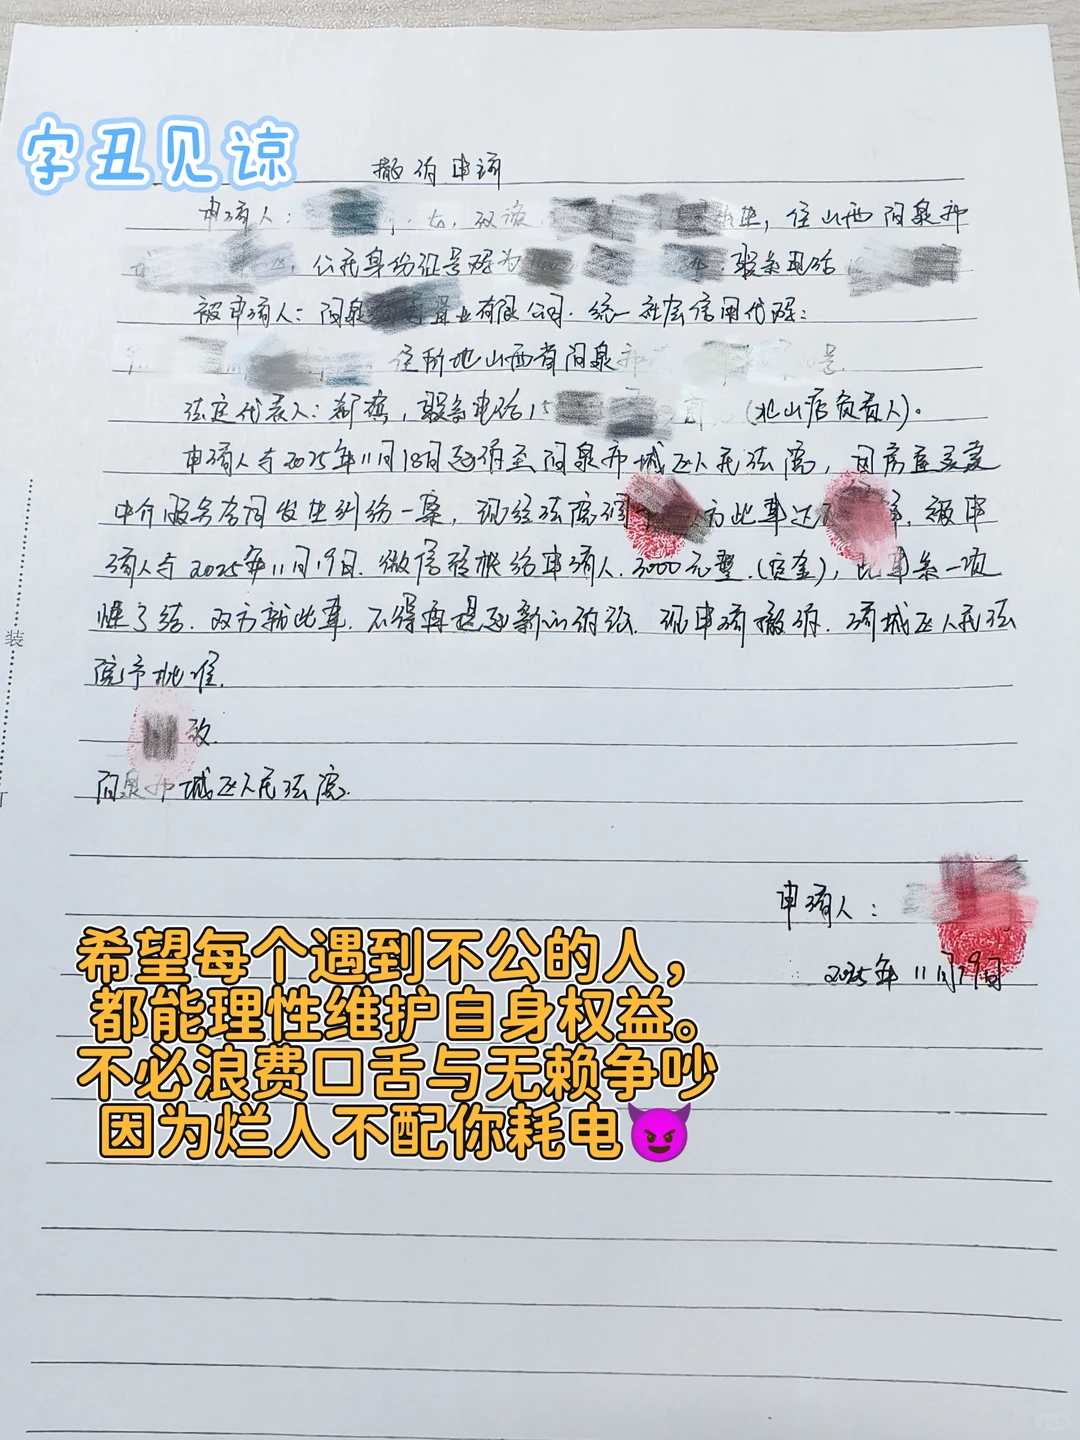 字丑见谅
撤诉申请
申请人：女，汉族，住山西阳泉市
公民身份证号码为 联系电话
被申请人：阳泉 置业有限公司．统一社会信用代码：
住所地山西省阳泉市 号
法定代表人： 联系电话15 （北山店负责人）。
申请人于2025年11月18日起诉至阳泉市城区人民法院，因房屋买卖
中介服务合同发生纠纷一案，现经法院调 方此事达 被申
请人于2025年11月19日．微信转账给申请人．3000元整．（定金），此事一次
性了结．双方就此事．不得再提起新的诉讼．现申请撤诉．请城区人民法
院予批准．
致
阳泉市城区人民法院．
申请人：
2025年11月19日
希望每个遇到不公的人，
都能理性维护自身权益。
不必浪费口舌与无赖争吵
因为烂人不配你耗电😈
装
订